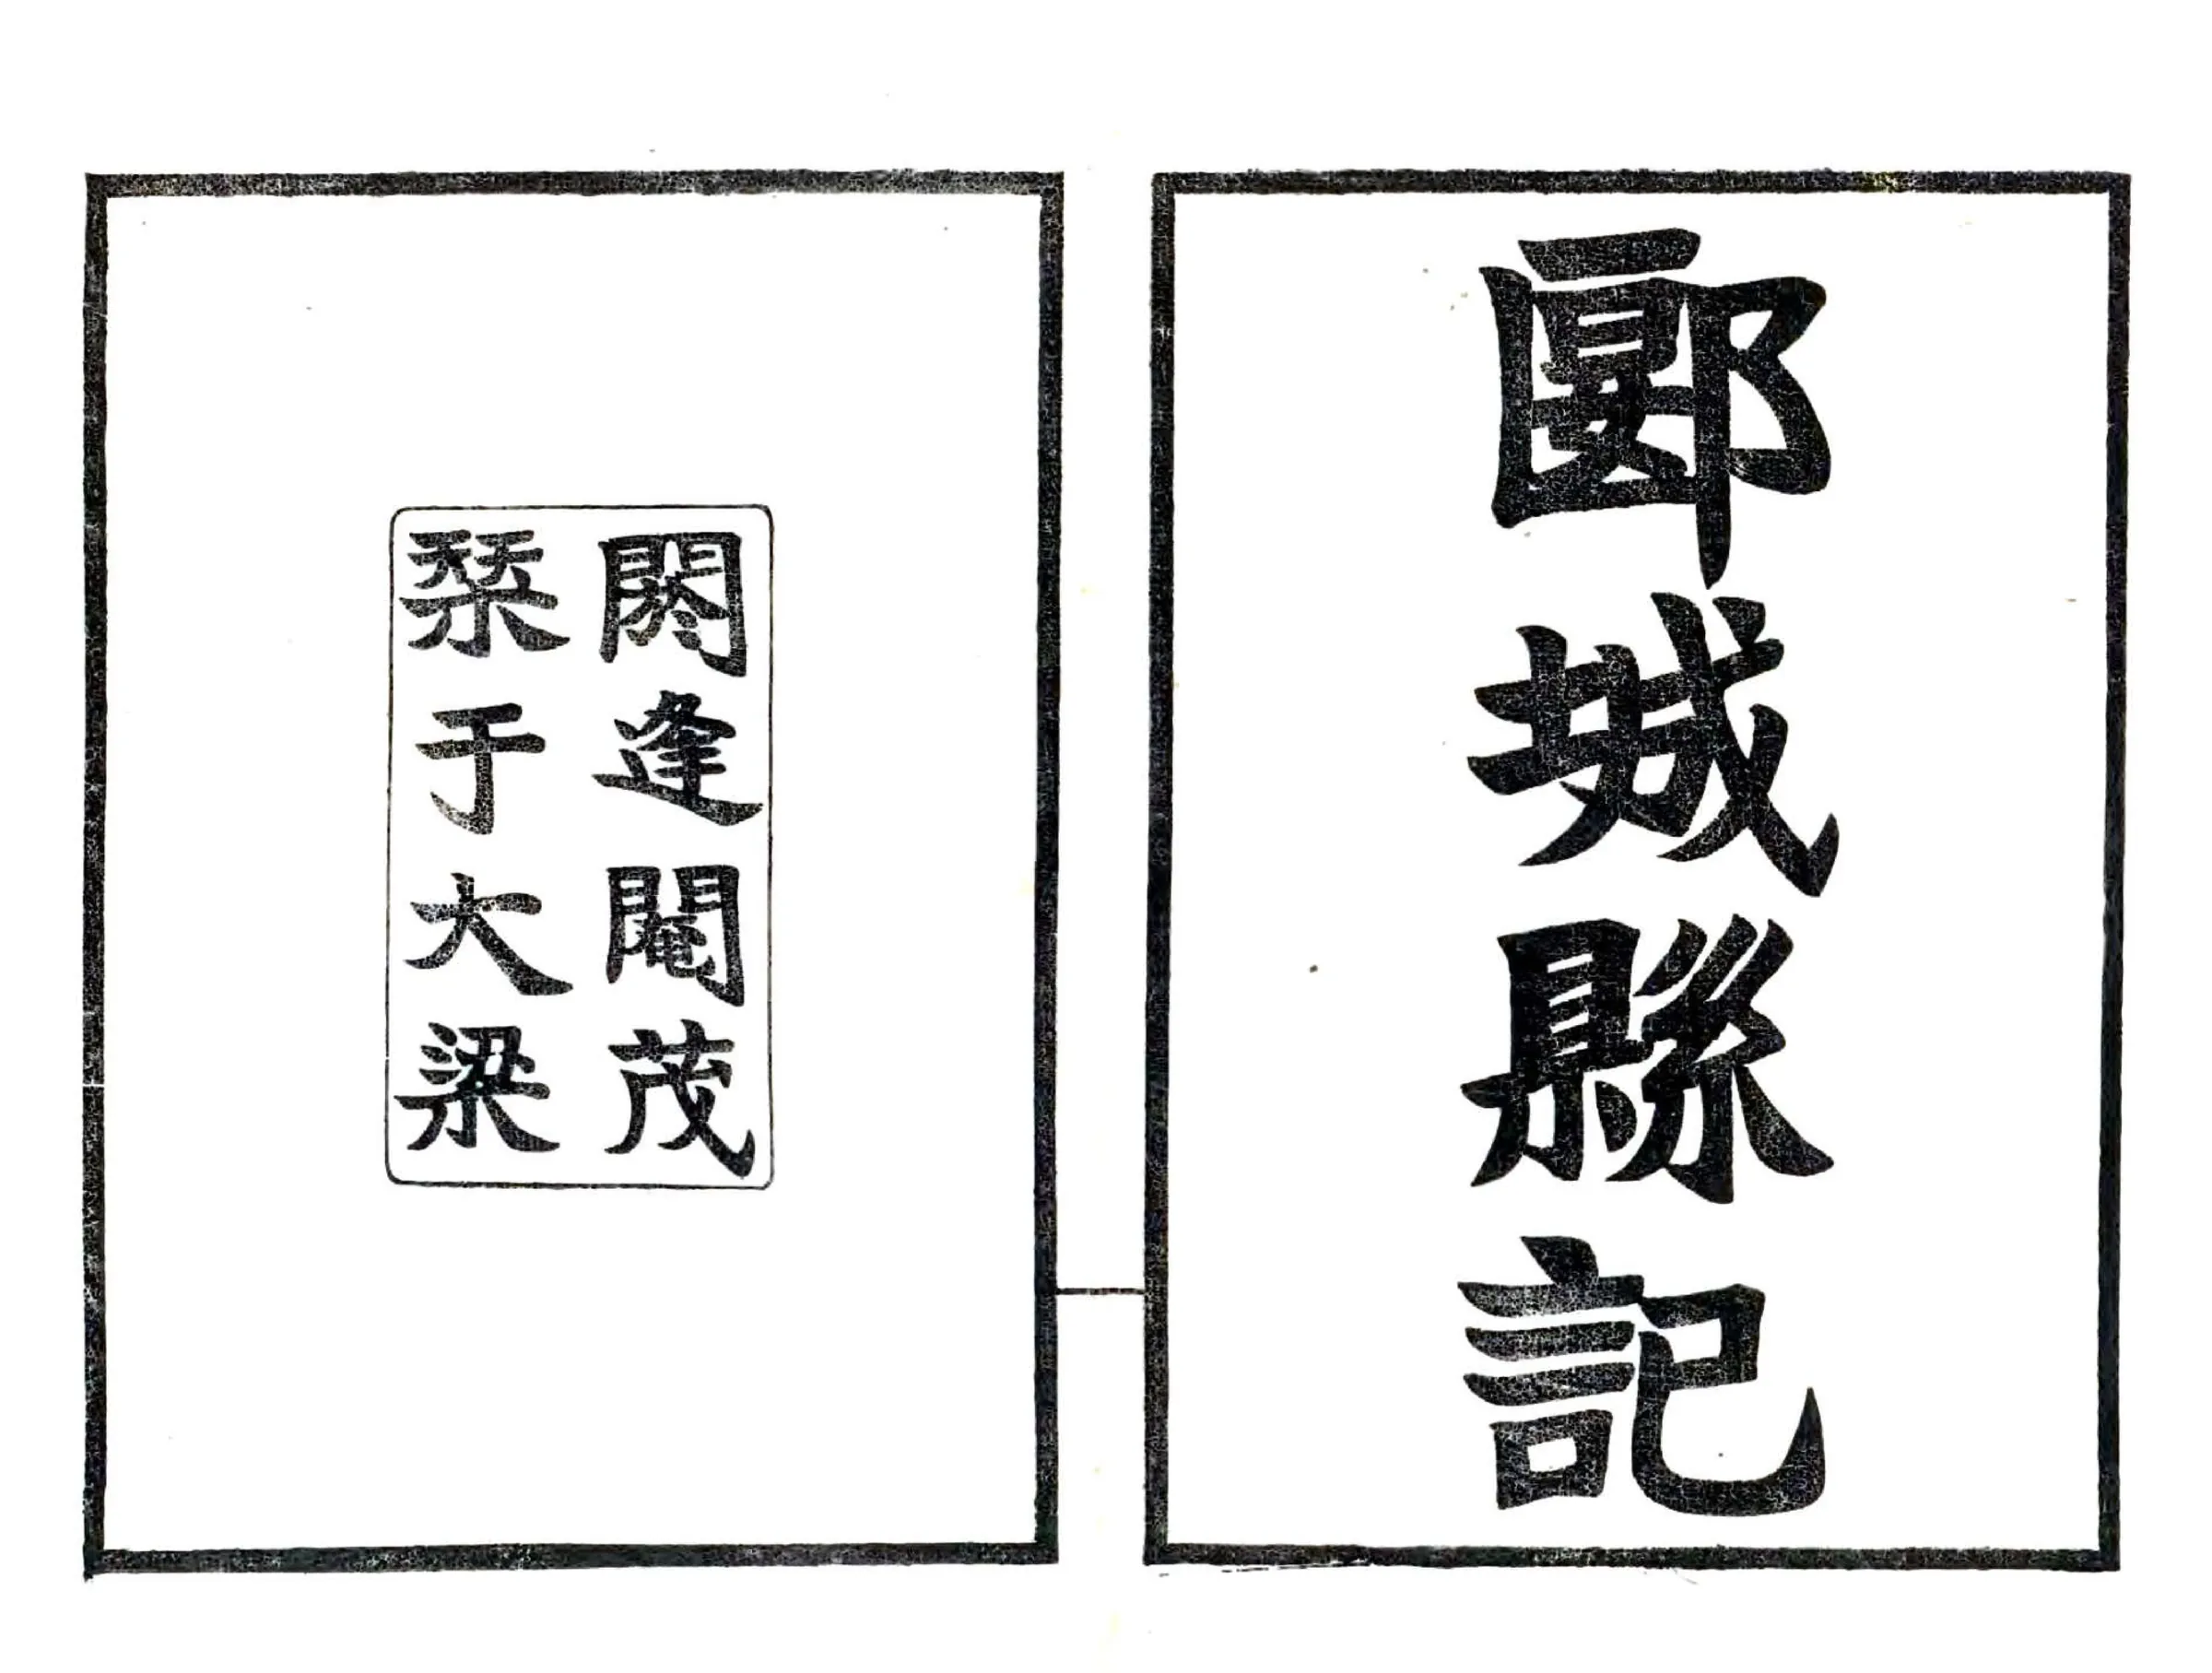 郾城縣記
閼逢閹茂
栞于大梁